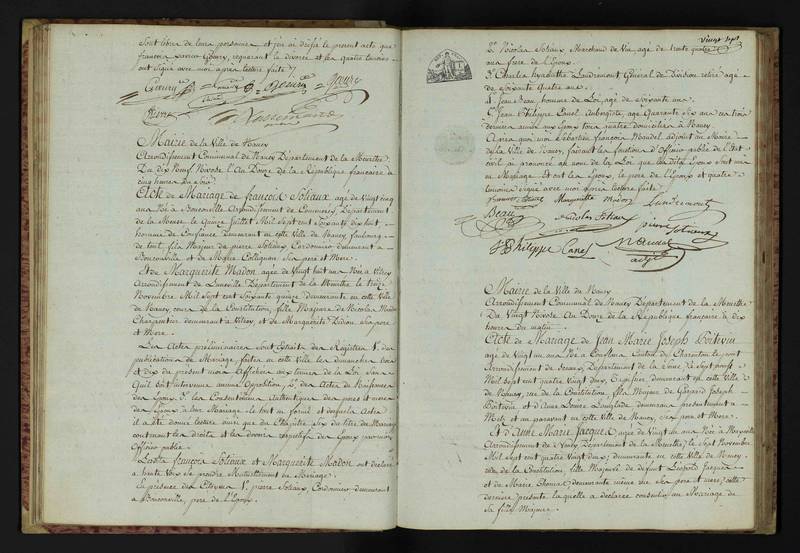 sont libres de leurs personnes et j'en ai dréssé le present acte que
François Goury, requerant le divorce et les quatre temoins
ont signé avec moi après lecture faite
Goeury
Mairie de la Ville de Nancy
Arrondissement Communal de Nancy Département de la Meurthe
Du dix Neuf Nivose l'An Douze de la République française à
cinq heures du Soir
Acte de Mariage de françois Soliaux, agé de Vingt cinq
ans Né à Bouconville Arrondissement de Commercy, Département
de la Meuse le quinze juillet Mil Sept cent Soixante dix huit,
homme de Confiance demeurant en cette Ville de Nancy, faubourg
de toul, fils Majeur de pierre Soliaux Cordonnier demeurant à
Bouconville et de Marie Collignon Ses pere et Mere
Et de Marguerite Madon agée de Vingt huit ans Née à Vitrey
Arrondissement de Luneville Département de la Meurthe, le treize
Novembre Mil Sept cent Soixante quinze demeurante en cette Ville
de Nancy, cours de la Constitution, fille Majeure de Nicolas Madon
Charpentier demeurant à Vitrey et de Marguerite Didion Ses pere
et Mere
Les Actes préliminaires sont Extraits des Registres 1° des
publications de Mariage, faites en cette Ville les dimanches
et dix du present mois affichées aux termes de la Loi Sans
Quil soit intervenu aucune Opposition, 2° des Actes de Naissances
des Epoux 3° les Consentemens Authentiques des peres et meres
des Epoux à leur Mariage le tout en forme et desquels Actes
il a été donné lecture ainsi que du Chapitre Six du titre du Mariage
contenant les droits et les devoirs respectifs des Epoux par nous
Officier public
Lesdits françois Soliaux et Marguerite Madon ont déclaré
à haute Voix se prendre Mutuellement en Mariage
En présence des Citoyens 1° pierre Soliaux, Cordonnier demeurant
à Bouconville, pere de l'Epoux
Vingt Sept
2° Nicolas Soliaux Marchand de Vin, agé de trente quatre
ans frere de l'Epoux
3° Charles hyacinthe Leudremont Général de Division retiré agé
de soixante quatre ans
4° Jean Beau, homme de Loi, agé de soixante ans
Jean Philippe Canel Aubergiste, agé Quarante six ans les trois
derniers amis aux Epoux tous quatre domiciliés à Nancy
Après quoi moi Sébastien françois Mandel adjoint au Maire
de la Ville de Nancy, faisant les fonctions d'Officier public de l'Etat
civil ai prononcé au nom de la Loi que lesdits Epoux sont unis
en Mariage. Et ont les Epoux, le pere de l'Epoux et quatre
temoins signé avec moi après lecture faite
Marguerite Madon Leudremont
Beau Nicolas Soliaux pierre Soliaux
Philippe Canel Mandel adjt
Mairie de la Ville de Nancy
Arrondissement Communal de Nancy Département de la Meurthe
Du Vingt Nivose An Douze de la République française à dix
heures du matin
Acte de Mariage de Jean Marie Joseph Poitevin
agé de Vingt un ans Né à Conflans Canton de Charenton le pont
Arrondissement de Sceaux, Département de la Seine, le Sept
Mil Sept cent quatre Vingt deux, demeurant en cette Ville
de Nancy, rue de la Constitution, fils Majeur de Gaspard Joseph
Poitevin et d'Anne Louise Longlade demeurans presentement à
Metz et au paravant en cette Ville de Nancy, ses pere et Mere
Et d'Anne Marie Jacques agée de Vingt un ans Née à
Arrondissement de Nancy Département de la Meurthe, le Sept Novembre
Mil Sept cent quatre Vingt deux, demeurante en cette Ville de Nancy,
rue de la Constitution, fille Majeure de defunt Leopold Jacques
et de Marie Thomas, demeurante même rue Ses pere et mere, cette
derniere présente laquelle a déclaré consentir au Mariage de
sa fille Majeure